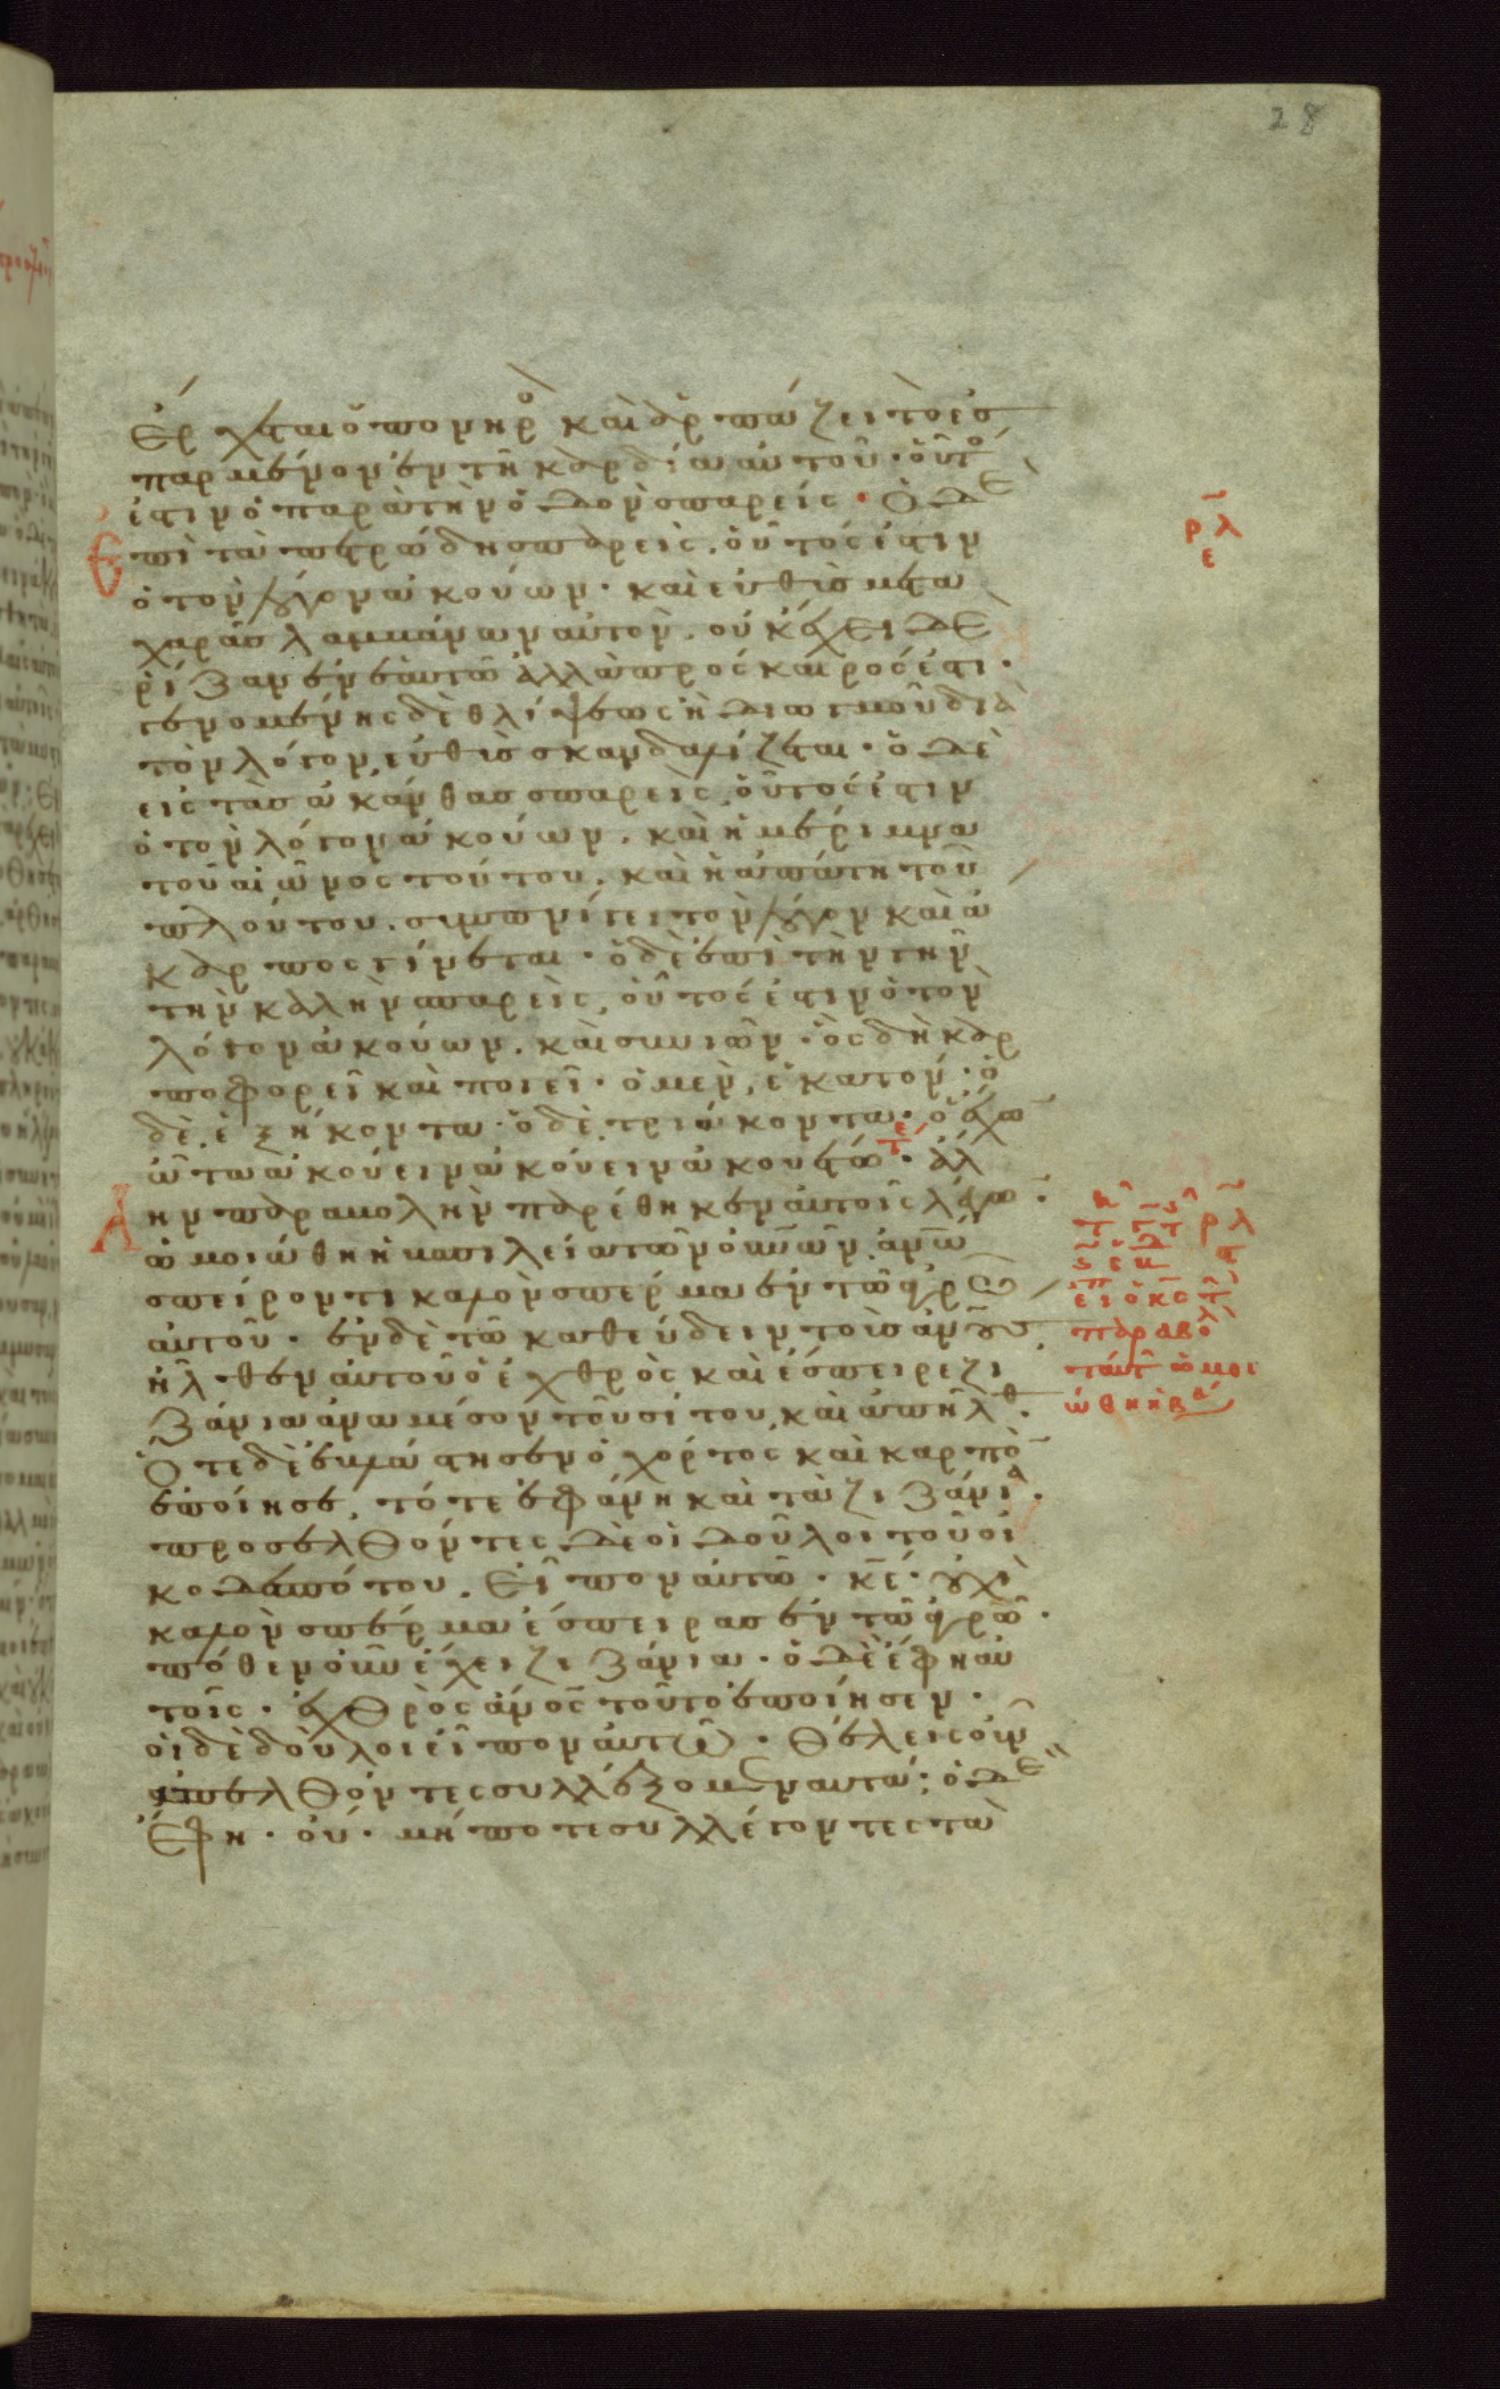 28
ἔρχεται ὁ πονηρὸ καὶ ἁρπάζει τὸ ἐσ
παρμένον ἐν τῆ καρδία αὐτοῦ· οὗτο
ἐστιν ὁ παρὰ τὴν ὁδὸν σπαρείς· Ὁ δὲ
ἐπὶ τὰ πετρώδη σπαρεὶς, οὗτός ἐστιν
ὁ τὸν λόγον ἀκούων· καὶ εὐθὺσ μετα
χαρᾶσ λαμβάνων αὐτόν, οὐκ ἔχει δὲ
ρίζαν ἐν ἑαυτῶ ἀλλὰ πρός καιρός ἐστι·
γενομένης δὲ θλίψεως ἢ διωγμοῦ διὰ
τὸν λόγον, εὐθὺσ σκανδαλίζεται· ὁ δὲ
εἰς τὰσ ἀκάνθασ σπαρεὶς, οὗτός ἐστιν
ὁ τὸν λόγον ἀκούων, καὶ ἡ μέριμνα
τοῦ αἰῶνος τούτου, καὶ ἡ ἀπάτη τοῦ
πλούτου, συμπνίγει τὸν λόγον καὶ ἄ
καρπος γίνεται· ὁ δὲ ἐπὶ τὴν γῆν
τὴν καλὴν σπαρεὶς, οὗτός ἐστιν ὁ τὸν
λόγον ἀκούων, καὶ συνιῶν· ὃς δὴ καρ
ποφορεῖ καὶ ποιεῖ· ὁ μὲν, ἑκατόν· ὁ
δὲ, ἑξήκοντα· ὁ δὲ, τριάκοντα· ὁ ἔχω
ὦτα ἀκούειν ἀκούειν ἀκουέτω· ἄλ
ην παραβολὴν παρέθηκεν αὐτοῖς λέγω·
ὡμοιώθη ἡ βασιλεία τῶν οὐνῶν ἀνῶ
σπείροντι καλὸν σπέρμα ἐν τῶ ἀγρῶ
αὐτοῦ· ἐν δὲ τῶ καθεύδειν τοὺσ ἀνουσ,
ἦλθεν αὐτοῦ ὁ ἐχθρὸς καὶ ἔσπειρε ζι
ζάνια ἀνα μέσον τοῦ σίτου, καὶ ἀπῆλθ·
Ὅτε δὲ ἐβλάστησεν ὁ χόρτος καὶ καρπὸ
ἐποίησε, τότε ἐφάνη καὶ τὰ ζιζάνια·
προσελθόντες δὲ οἱ δοῦλοι τοῦ οἰ
κοδεσπότου, Εἶπον αὐτῶ· κε· οὐχὶ
καλὸν σπέρμα ἔσπειρασ ἐν τῶ ἀγρῶ·
πόθεν οὖν ἔχει ζιζάνια· ὁ δὲ ἔφη αὐ
τοῖς· ἐχθρὸς ἀνος τοῦτο ἐποίησεν·
οἱ δὲ δοῦλοι εἶπον αὐτῶ· Θέλεις οὖν
ἀπελθόντες συλλέξομεν αυτά; ὁ δὲ
Ἔφη· οὐ· μήποτε συλλέγοντες τὰ
ρλ
ε
ρλ
εἶ ὁ κς τ
παραβολ
ταύτ ὡμοι
ώθη ἡ βα